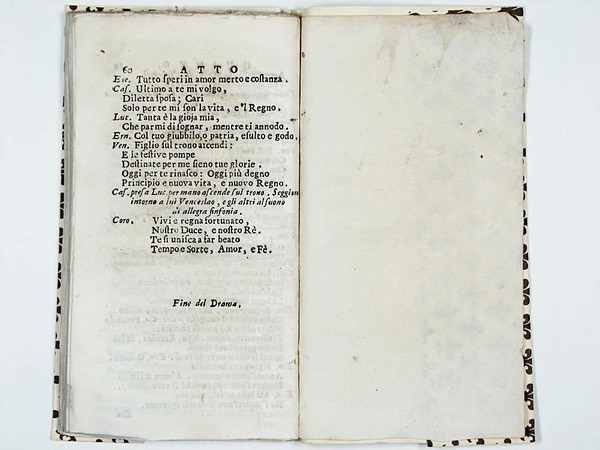 60 ATTO
Ere. Tutto speri in amor merto e costanza.
Cas. Ultimo a te mi volgo,
Diletta sposa; Cari
Solo per te mi son la vita, e 'l Regno.
Luc. Tanta è la gioja mia,
Che parmi di sognar, mentre ti annodo.
Ern. Col tuo giubbilo, o patria, esulto e godo.
Ven. Figlio sul trono ascendi:
E le festive pompe
Destinate per me sieno tue glorie.
Oggi per te rinasco: Oggi più degno
Principio e nuova vita, e nuovo Regno.
Cas. presa Luc. per mano ascende sul trono. Seggon
intorno a lui Venceslao, e gli altri al suono
di allegra sinfonia.
Coro. Vivi e regna fortunato,
Nostro Duce, e nostro Rè.
Te si unisca a far beato
Tempo e Sorte, Amor, e Fè.
Fine del Drama.